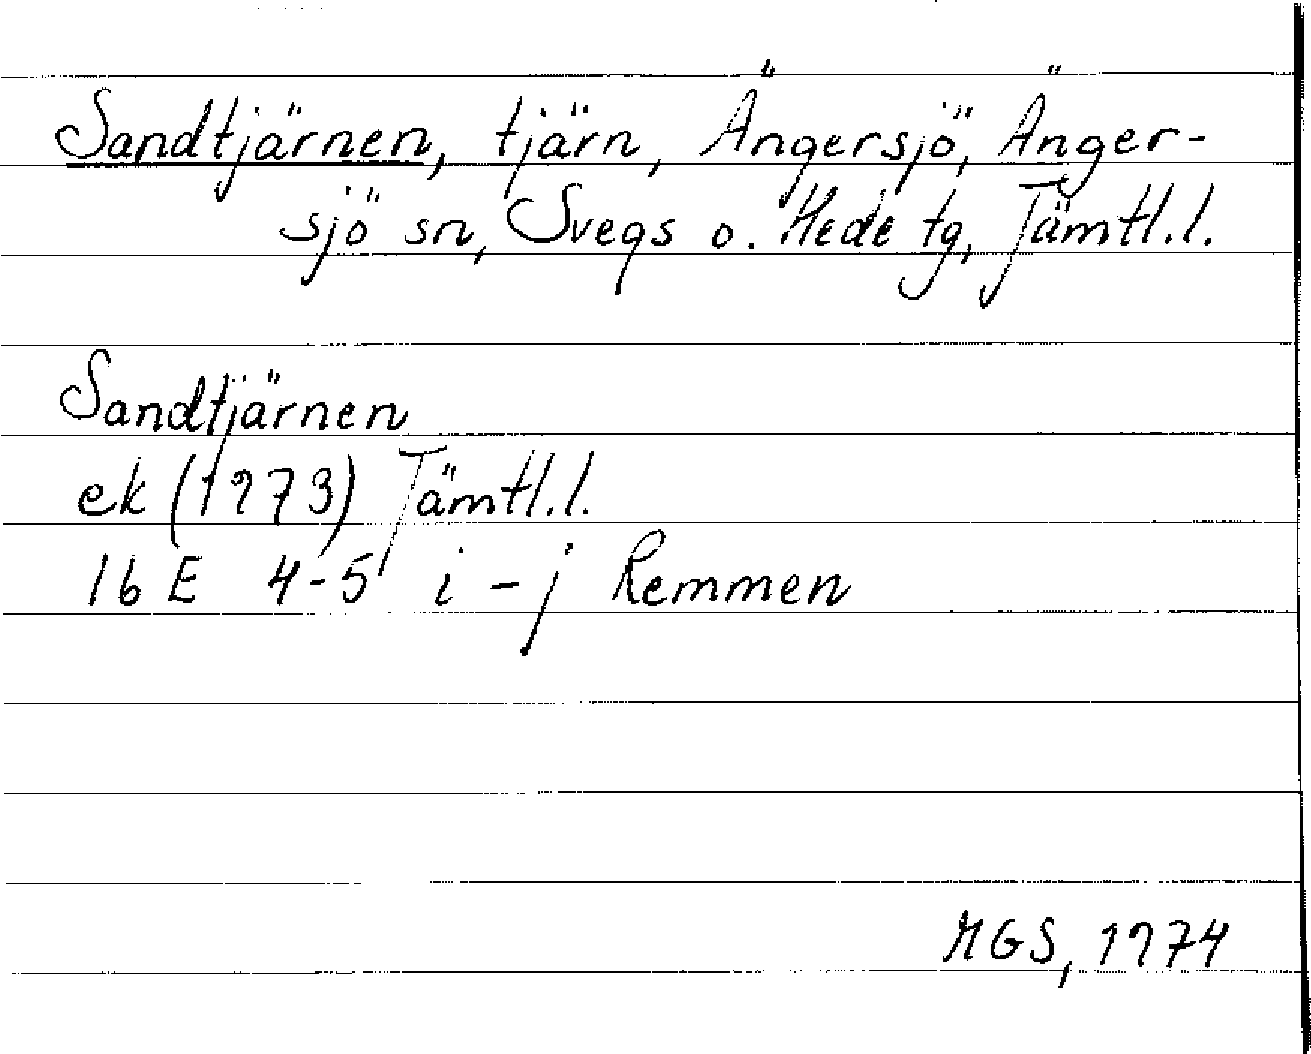 Sandtjärnen, tjärn, Ängersjö, Änger-
sjö sn, Svegs o. Hede tg, Jämtl.l.
Sandtjärnen
ek (1973) Jämtl.l.
16 E 4-5 i - j Remmen
MGS, 1974